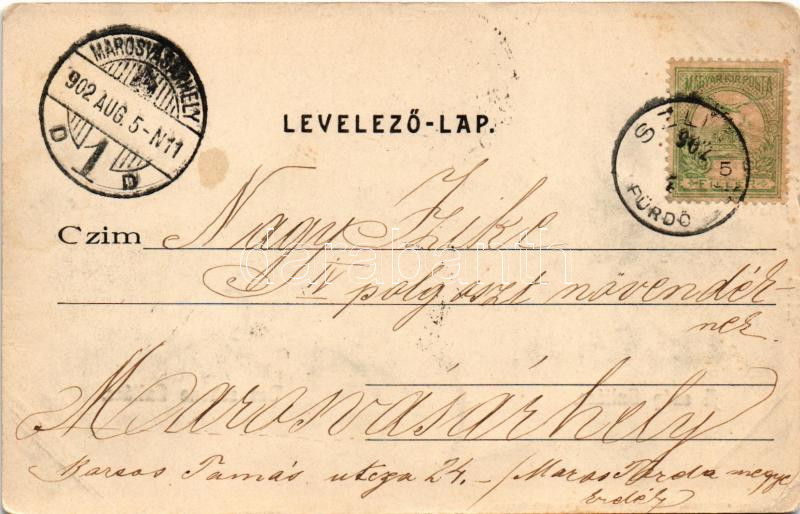 MAROSVÁSÁRHELY
902 AUG. 5-N11
D 1 D
LEVELEZŐ-LAP.
MAGYAR KIR. POSTA
902
5
FÜRDŐ
Czim Nagy Izike
IV polg oszt növendék-
nek
Marosvásárhely
Borsos Tamás utcza 24. - / Maros Torda megye
Erdély
darabanth